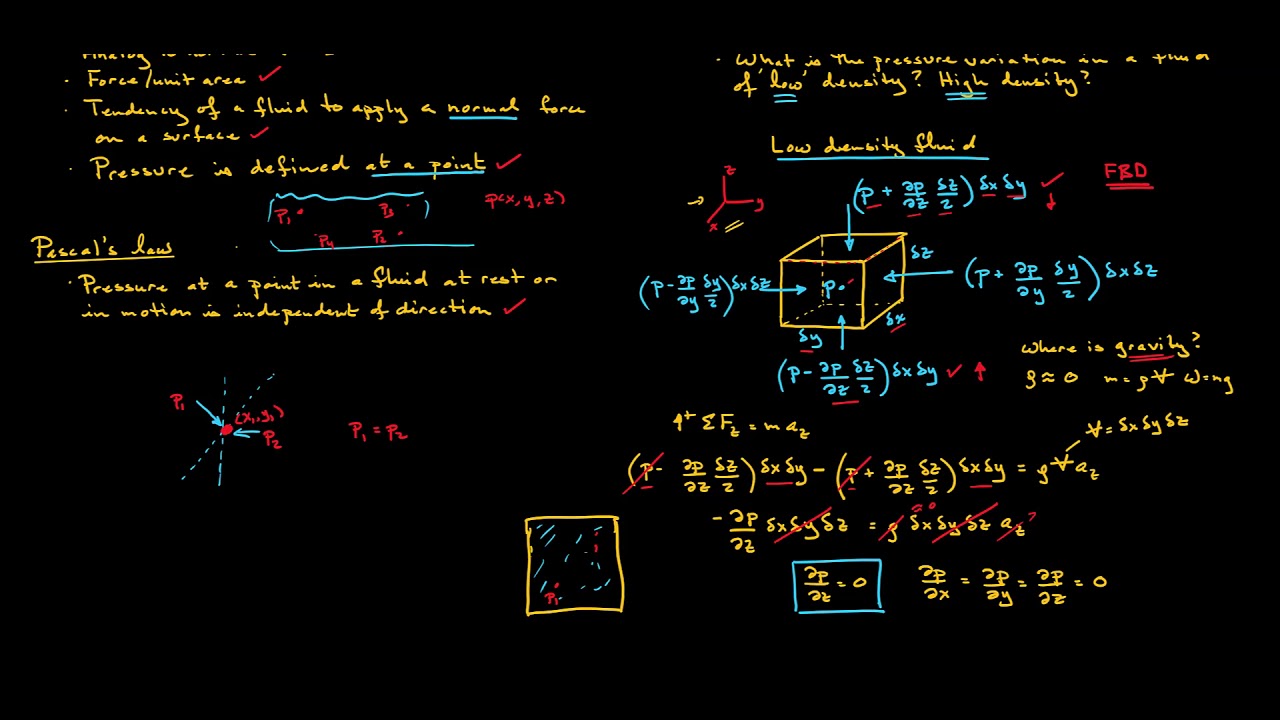 Analog is
· Force/unit area ✓
· Tendency of a fluid to apply a normal force
on a surface ✓
· Pressure is defined at a point ✓
P₁ P₃ P₄ P₂ p(x, y, z)
Pascal's law
· Pressure at a point in a fluid at rest or
in motion is independent of direction ✓
P₁ (x₁, y₁) P₂
P₁ = P₂
P₁
· What is the pressure variation in a fluid
of 'low' density? High density?
Low density fluid
FBD
z y x
(p + ∂p/∂z δz/2) δx δy ✓ ↓
δz
(p - ∂p/∂y δy/2) δx δz
p
(p + ∂p/∂y δy/2) δx δz
δy δx
(p - ∂p/∂z δz/2) δx δy ✓ ↑
Where is gravity?
ρ ≈ 0 m = ρ∀ ω = mg
↑+ ΣF_z = m a_z
∀ = δx δy δz
(p - ∂p/∂z δz/2) δx δy - (p + ∂p/∂z δz/2) δx δy = ρ ∀ a_z
≈ 0
- ∂p/∂z δx δy δz = ρ δx δy δz a_z
∂p/∂z = 0
∂p/∂x = ∂p/∂y = ∂p/∂z = 0